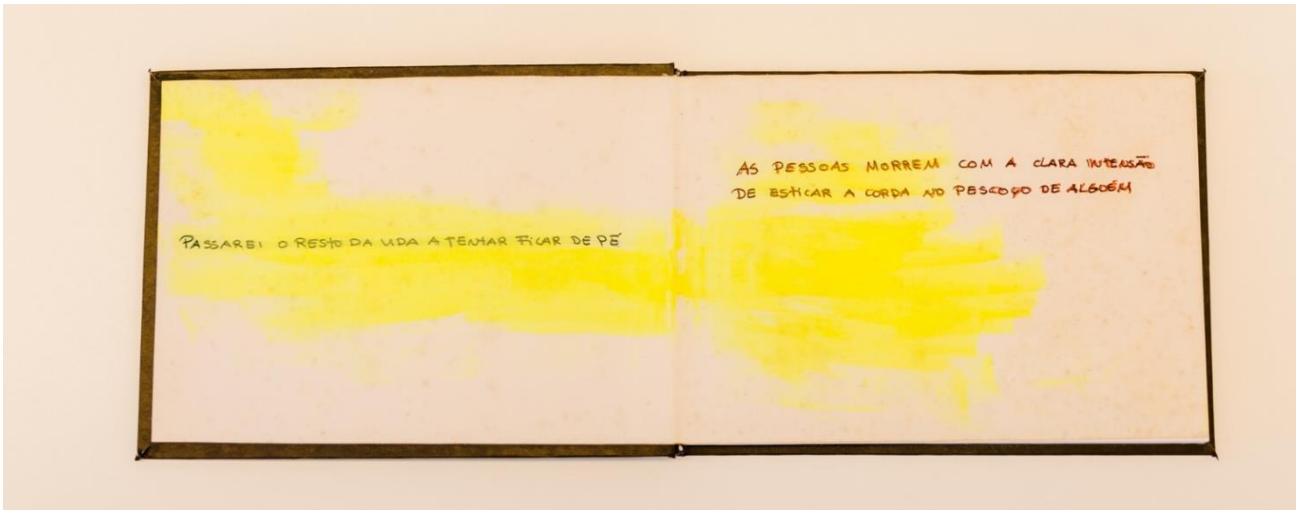 PASSAREI O RESTO DA VIDA A TENTAR FICAR DE PÉ
AS PESSOAS MORREM COM A CLARA INTENSÃO
DE ESTICAR A CORDA NO PESCOÇO DE ALGUÉM